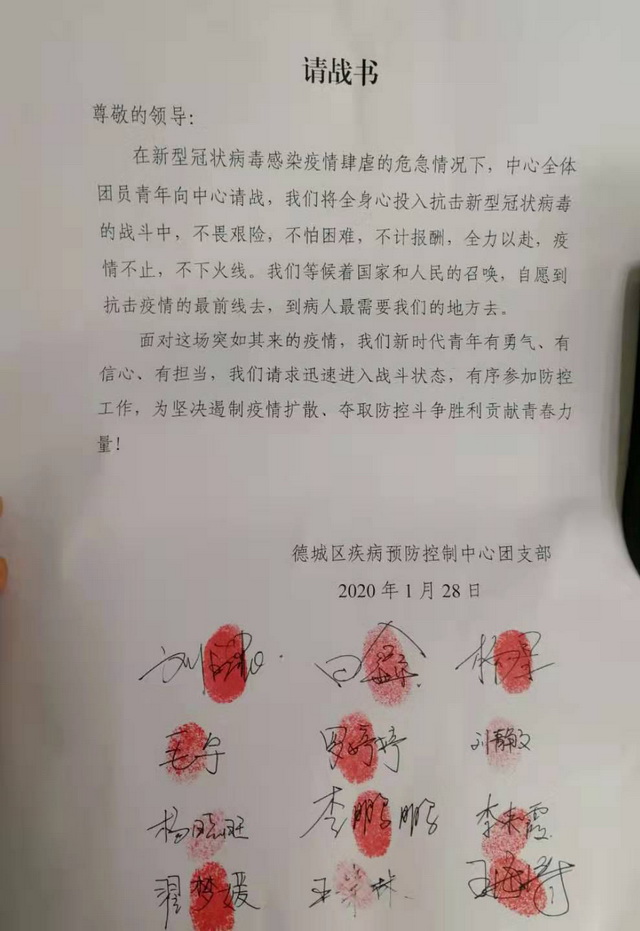 请战书
尊敬的领导：
在新型冠状病毒感染疫情肆虐的危急情况下，中心全体
团员青年向中心请战，我们将全身心投入抗击新型冠状病毒
的战斗中，不畏艰险，不怕困难，不计报酬，全力以赴，疫
情不止，不下火线。我们等候着国家和人民的召唤，自愿到
抗击疫情的最前线去，到病人最需要我们的地方去。
面对这场突如其来的疫情，我们新时代青年有勇气、有
信心、有担当，我们请求迅速进入战斗状态，有序参加防控
工作，为坚决遏制疫情扩散、夺取防控斗争胜利贡献青春力
量！
德城区疾病预防控制中心团支部
2020 年 1 月 28 日
罗婷婷 刘静敏
杨晓旺 李鹏鹏 李来霞
翟梦媛